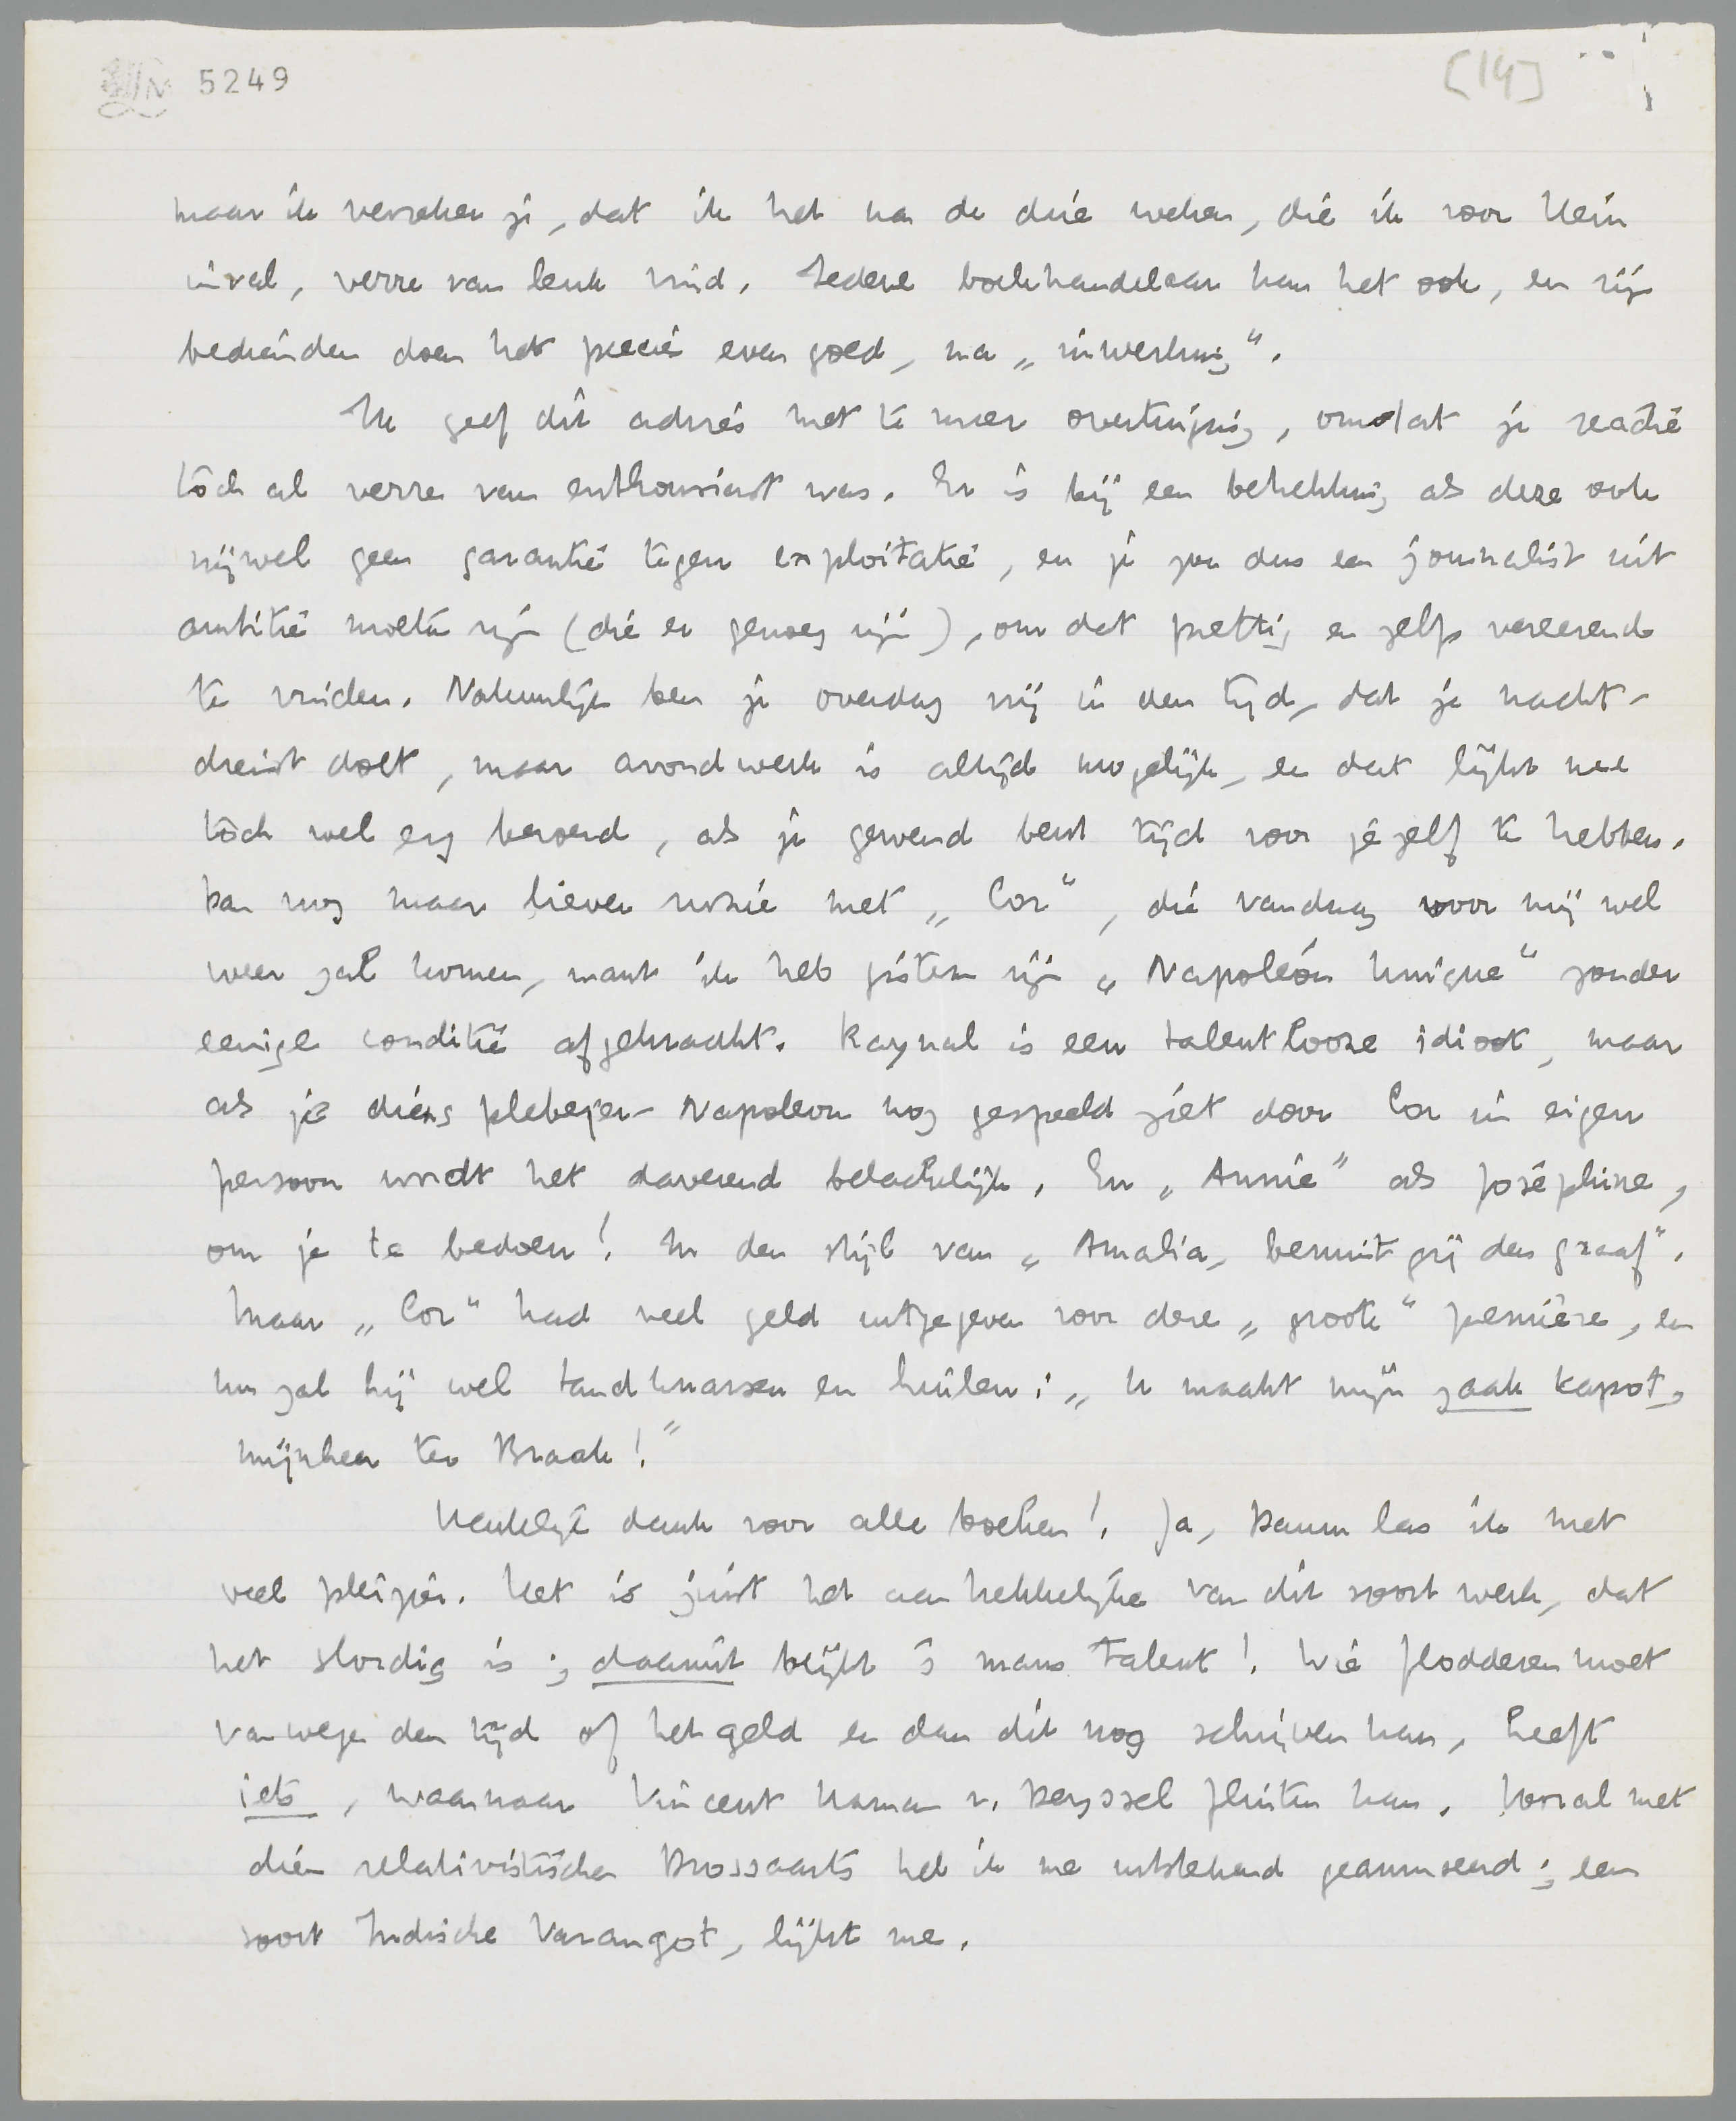 5249
[14]
maar ik verzeker je, dat ik het na de drie weken, die ik voor Klein
inval, verre van leuk vind. Iedere boekhandelaar kan het ook, en zijn
bedienden doen het precies even goed, na „inwerking".
Ik geef dit advies met te meer overtuiging, omdat je reactie
tòch al verre van enthousiast was. Er is bij een betrekking als deze ook
vrijwel geen garantie tegen exploitatie, en je zou dus een journalist uit
ambitie moeten zijn (die er genoeg zijn), om dat prettig en zelfs vereerend
te vinden. Natuurlijk ben je overdag vrij in den tijd, dat je nacht-
dienst doet, maar avondwerk is altijd mogelijk, en dat lijkt me
tòch wel erg beroerd, als je gewend bent tijd voor jezelf te hebben.
Dan nog maar liever ruzie met „Cor", die vandaag voor mij wel
weer zal komen, want ik heb gisteren zijn „Napoléon Unique" zonder
eenige conditie afgekraakt. Raynal is een talentlooze idioot, maar
als je diens plebejer-Napoleon nog gespeeld ziet door Cor in eigen
persoon wordt het daverend belachelijk. En „Annie" als Joséphine,
om je te bedoen! In den stijl van „Amalia, bemint gij den graaf".
Maar „Cor" had veel geld uitgegeven voor deze „groote" première, en
nu zal hij wel tandknarsen en huilen: „U maakt mijn zaak kapot,
mijnheer ter Braak!"
Hartelijk dank voor alle boeken! Ja, Daum las ik met
veel pleizier. Het is juist het aantrekkelijke van dit soort werk, dat
het slordig is; daaruit blijkt 's mans talent! Wie flodderen moet
vanwege den tijd of het geld en dan dit nog schrijven kan, heeft
iets, waarnaar Vincent Haman v. Deyssel fluiten kan. Vooral met
dien relativistischen Brossaerts heb ik me uitstekend geamuseerd; een
soort Indische Varangot, lijkt me.